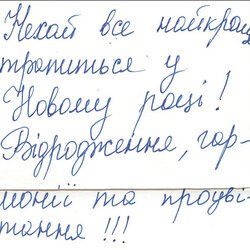 Нехай все найкращ
трапиться у
Новому році!
Відродження, гар-
монії та процві-
тання !!!